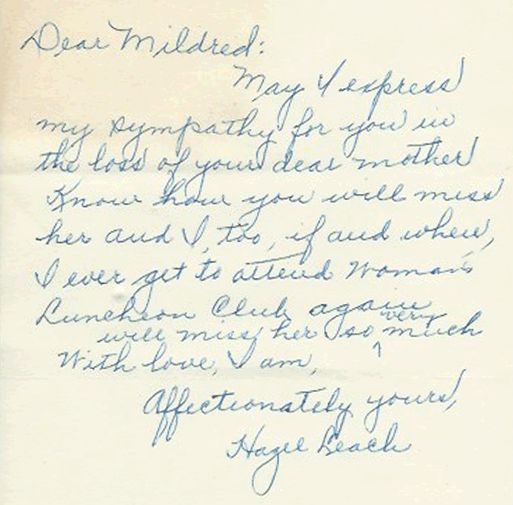 Dear Mildred:
May I express
my sympathy for you in
the loss of your dear mother
Know how you will miss
her and I, too, if and when,
I ever get to attend Woman's
Luncheon Club again
will miss her so very much
With love, I am,
Affectionately yours,
Hazel Leach